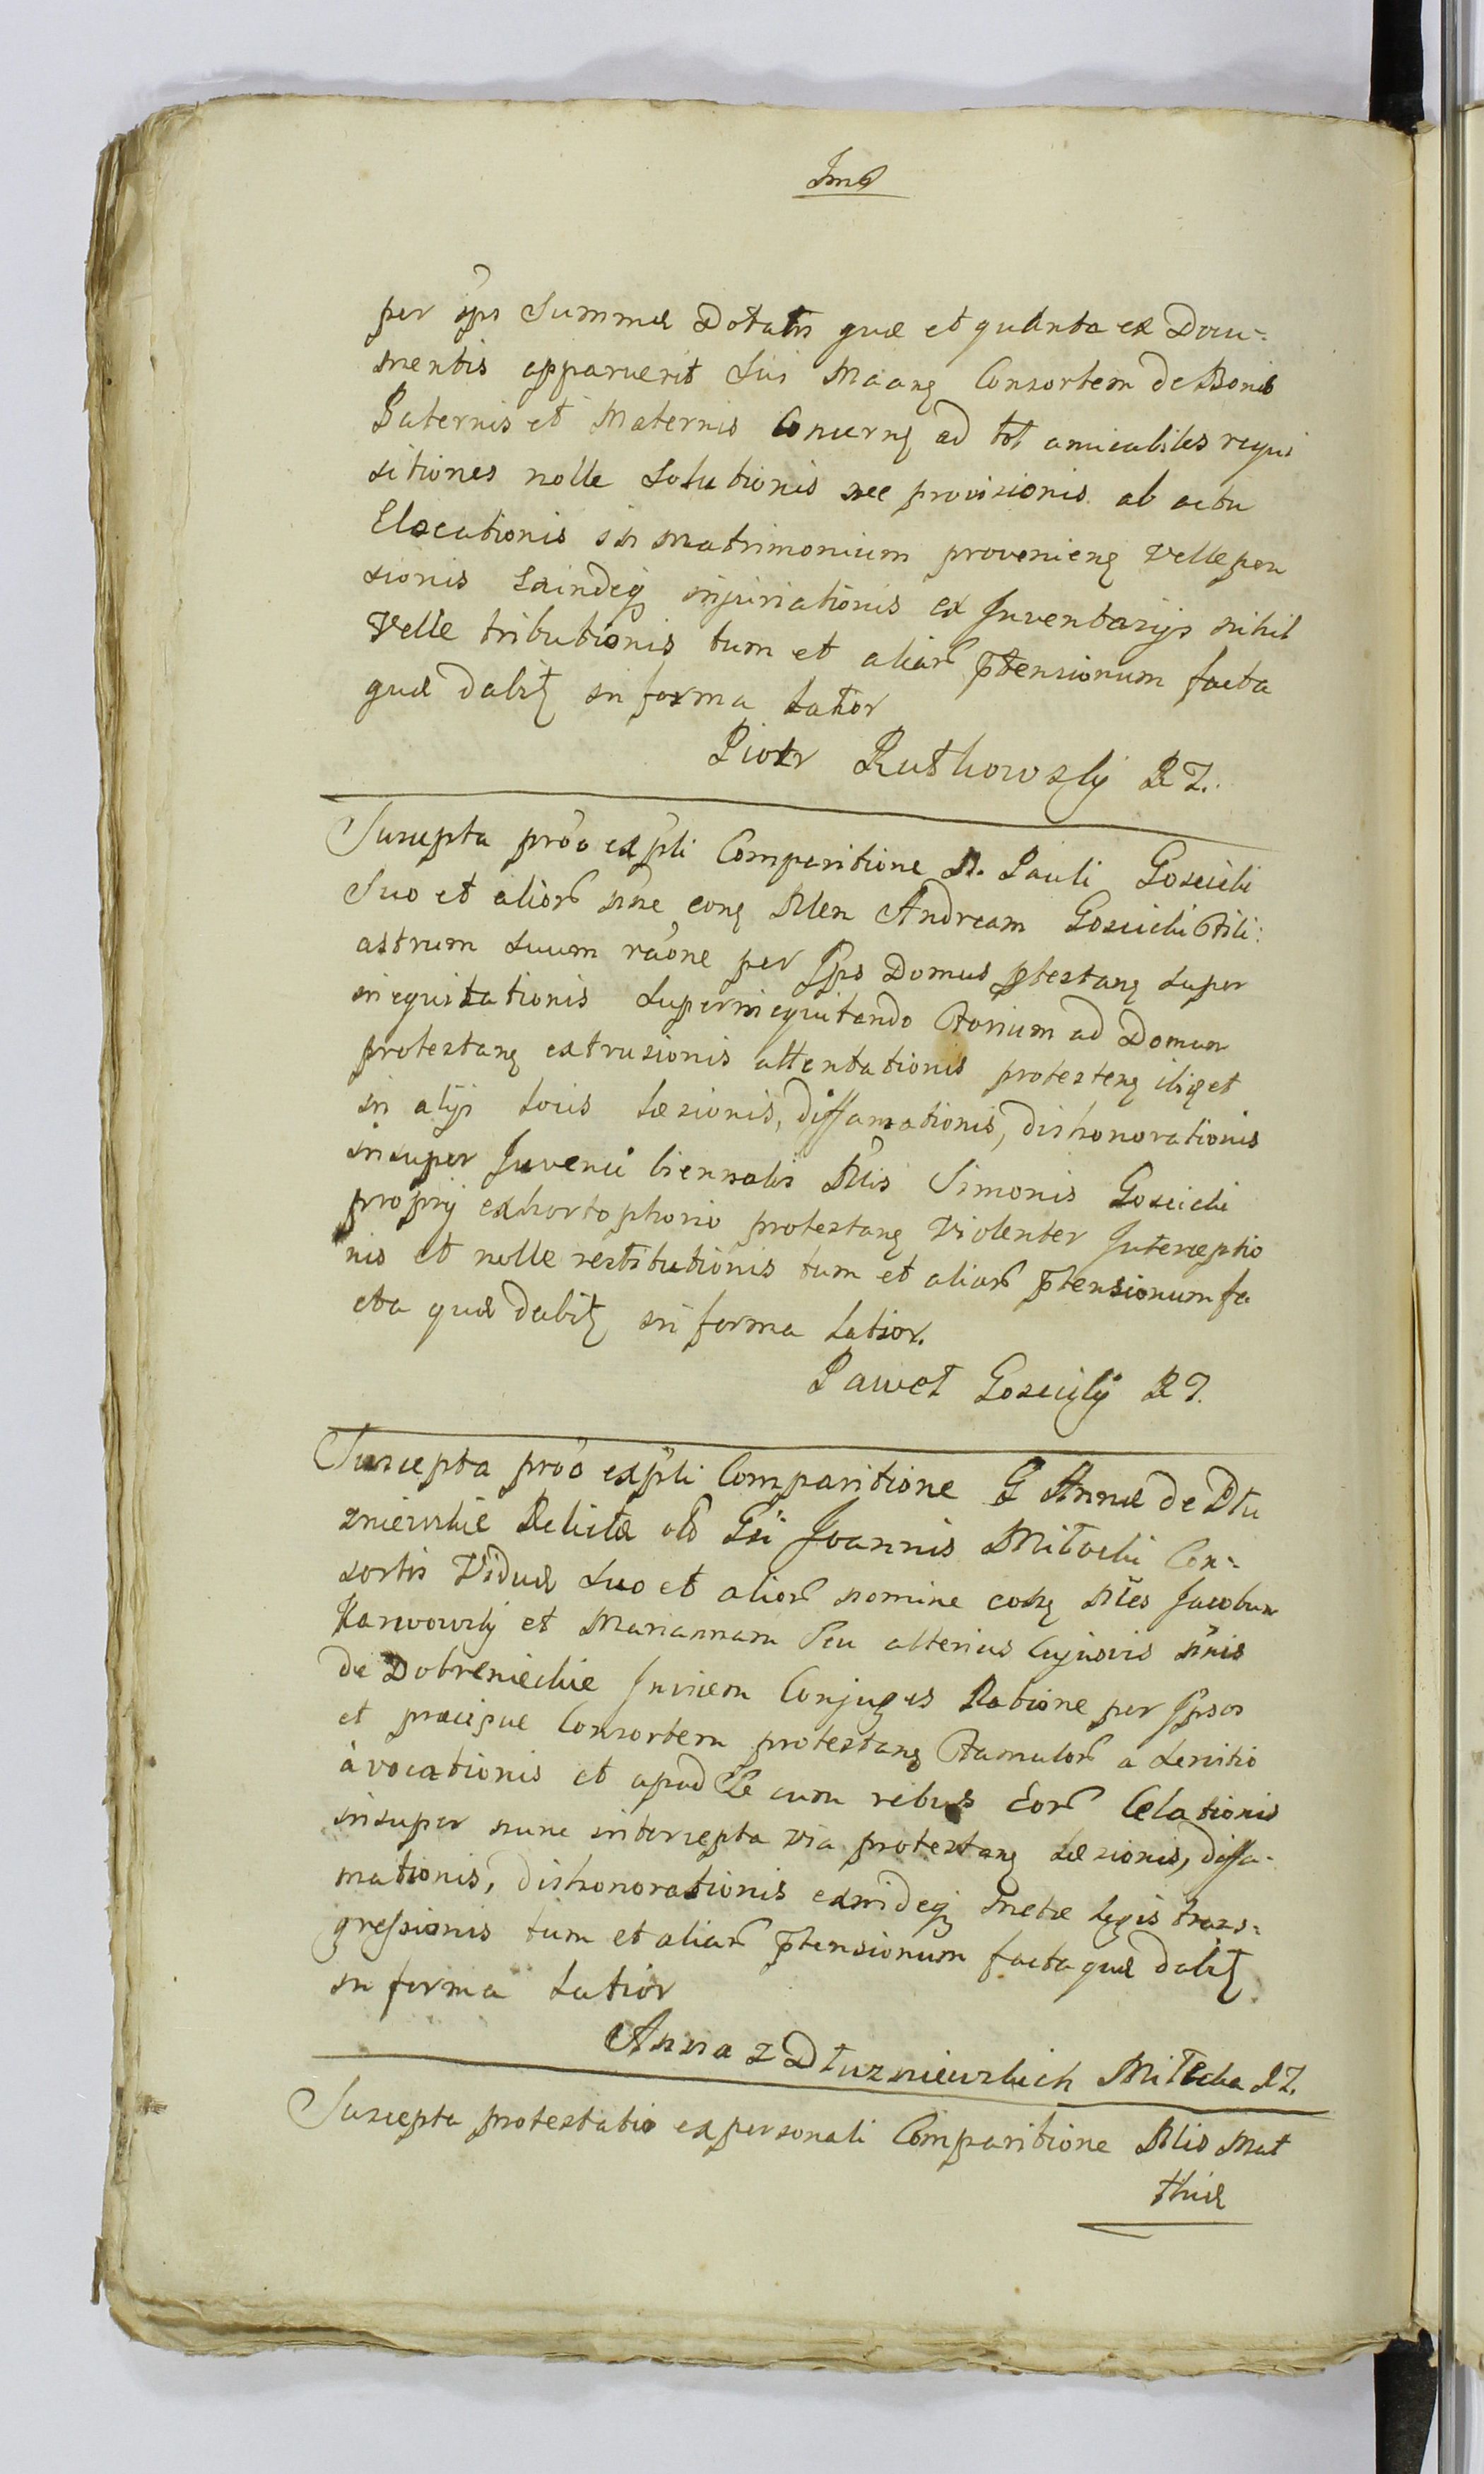 Imo
per ips Summæ Dotalis quæ et quanta ex Docu=
mentis apparuerit sui Maanę Consortem de Bonis
Paternis et Maternis Concernę ad tot amicabiles requi
sitiones nolle solutionis nec provisionis ab actu
Elocationis in matrimonium provenienę velle pen
sionis Exindeq injuriationis ex Inventarijs nihil
Velle tributionis tum et aliar ptensionum facta
quæ dabitę in forma latior
Piotr Rutkowsky RZ.
Suscepta prõo ex pli Comparitione N. Pauli Goscicki
Suo et alior nne conę Nlem Andream Goscicki Fili=
astrum suum raõne per Ips Domus ptestanę super
inequitationis superinequitando Forium ad Domum
protestanę extrusionis attentationis protestenę ibiq et
in alijs locis læsionis, diffamationis, dishonorationis
insuper Juvenci biennalis Nlis Simonis Goscicki
proprij ex hortophorio protestanę Violenter Interceptio
nis et nolle restitutionis tum et aliar ptensionum fa
cta quæ dabitę in forma latior.
Paweł Goscicky RZ.
Suscepta prõo ex pli Comparitione G Annæ de Dłu
zniewskie Relictæ olo Gsi Joannis Miłocki Con=
sortis Viduæ suo et alior nomine conę Nles Jacobum
Karwowsky et Mariannam Seu alterius Cujusvis nnis
de Dobreniechie Invicem Conjuges Ratione per Ipsos
et præcipue Consortem protestanę Famulor a servitio
avocationis et apud Se cum rebus Eor Celationis
insuper nunc intercepta via protestanę læsionis, diffa-
mationis, dishonorationis exindeq metæ legis trans=
gressionis tum et aliar ptensionum facta quæ dabitę
in forma latior
Anna z Dłuzniewskich Miłocka RZ.
Suscepta protestatio ex personali Comparitione Nlis Mat
thiæ